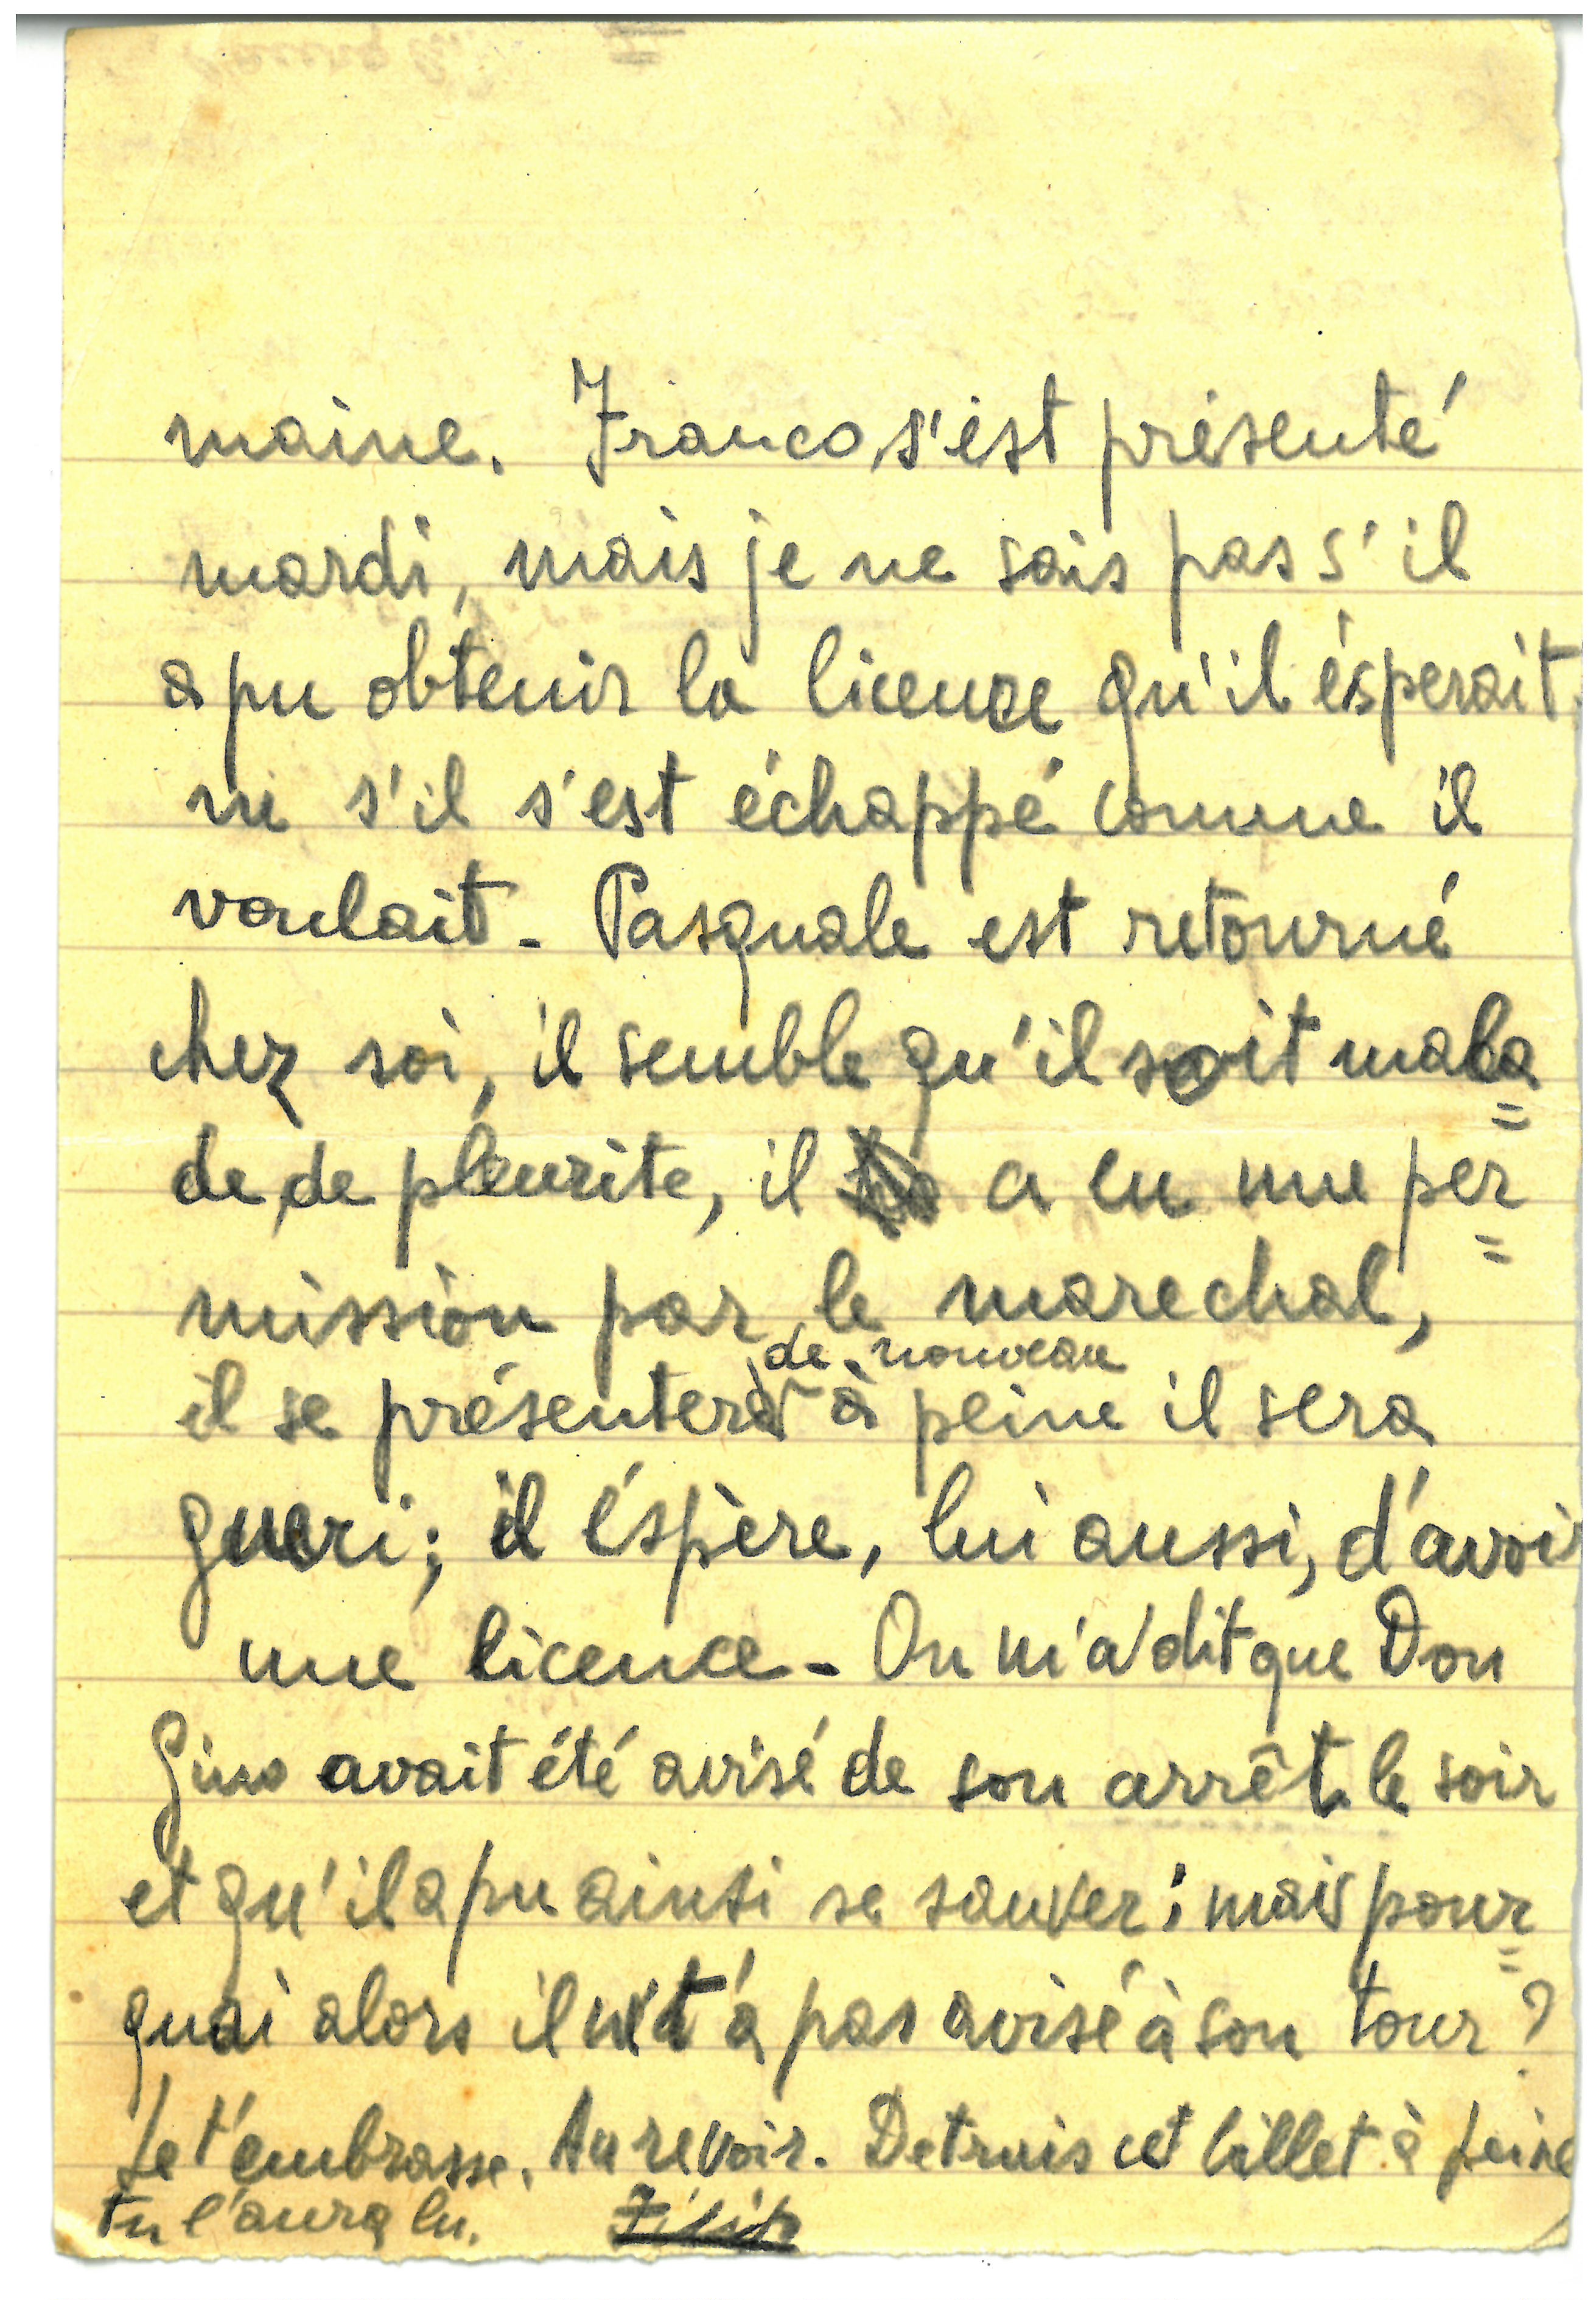 maine. Franco, s'est présenté
mardi, mais je ne sais pas s'il
a pu obtenir la licence qu'il ésperait,
ni s'il s'est échappé comme il
voulait - Pasquale est retourné
chez soi, il semble qu'il soit mala=
de, de pleurite, il a eu une per=
mission par le marechal,
de nouveau
il se présentera à peine il sera
gueri; il éspère, lui aussi, d'avoir
une licence - On m'a dit que Don
Gino avait été avisé de son arrêt le soir
et qu'il a pu ainsi se sauver; mais pour=
quoi alors il t'a pas avisé à son tour ?
Je t'embrasse. Au revoir. Detruis cet billet à peine
tu l'aura lu.